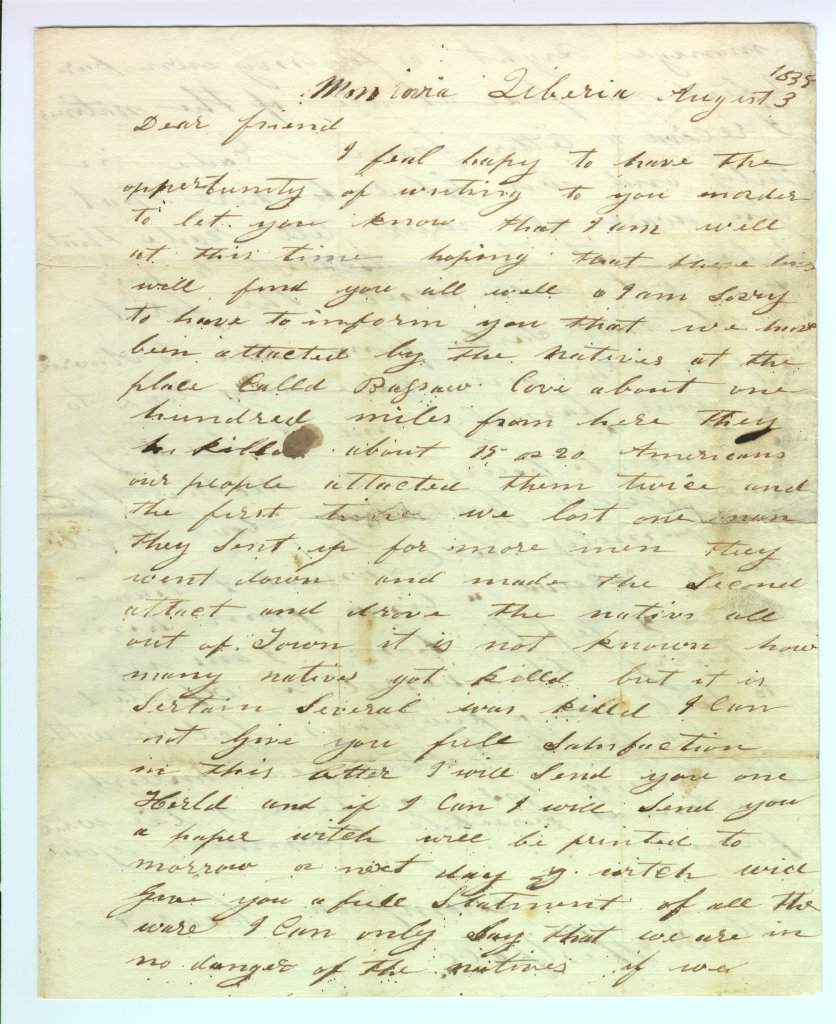 1835
Monrovia Liberia August 3
Dear friend
I feal hapy to have the
oppertunity of writing to you inorder
to let you know that I am well
at this time hoping that these lins
will find you all well I am Sorry
to have to inform you that we have
been attacted by the natives at the
place Calld Bassaw Cove about one
hundred miles from here they
killed about 15 or 20 Americans
our people attacted them twice and
the first time we lost one man
they Sent up for more men they
went down and made the Second
attact and drove the nativs all
out of Town it is not known how
many natives got killd but it is
Sertain Several was killd I Can
not Give you full Satisfaction
in this letter I will Send you one
Herld and if I Can I will Send you
a paper witch will be printed to
morrow or next day witch will
Give you a full Statment of all the
ware I Can only Say that we are in
no danger of the natives if we